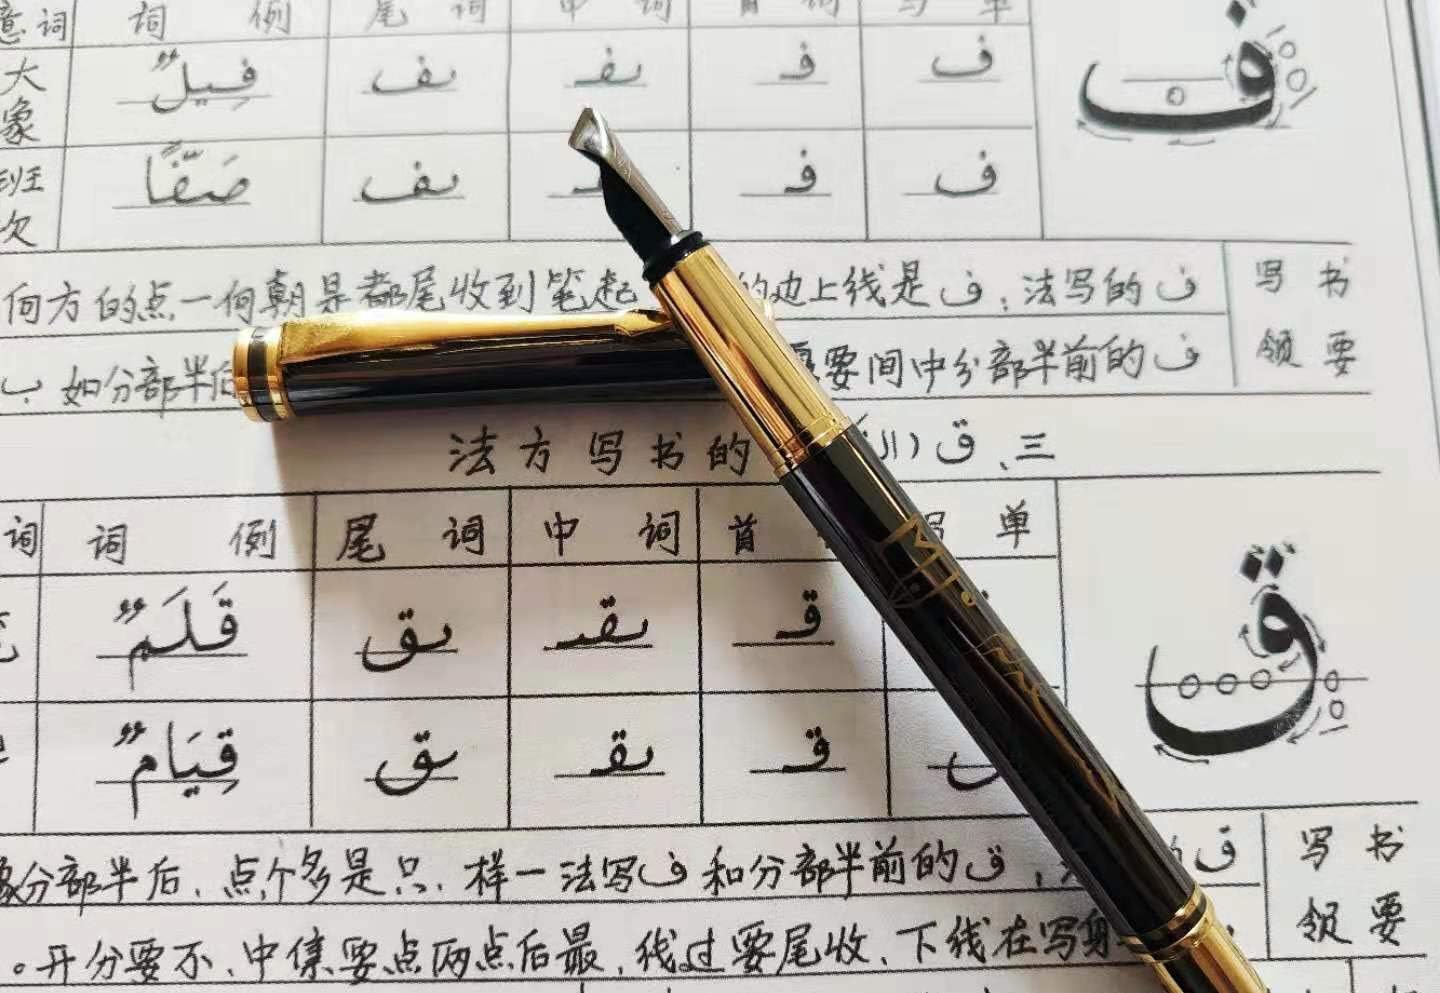 单写 词首 词中 词尾 例词 词意
ف ف فـ ـفـ ـف فِيلٌ 大象
ف فـ ـف صَفًّا 班次
书写 ف的写法：ف是线上边的 起笔到收尾都是朝何一点的方何
要领 ف的前半部分中间要 后半部分如ب、
三、ق (ال 的书写方法
单写 首 词中 词尾 例词 词
قـ ـقـ ـق قَلَمٌ
ق قـ ـقـ ـق قِيَامٌ
ق
书写 ق的 ，ق的前半部分和ف写法一样，只是多个点，后半部分
要领 身写在线下，收尾要过线，最后点两点要集中，不要分开。